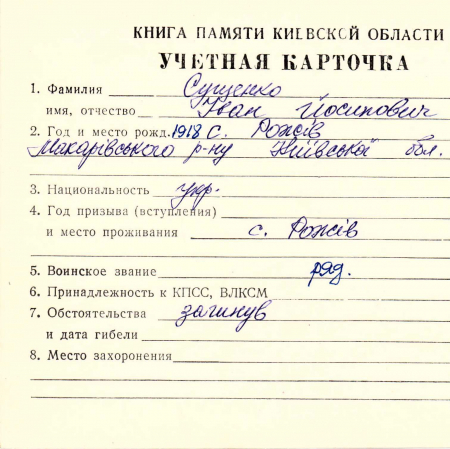 КНИГА ПАМЯТИ КИЕВСКОЙ ОБЛАСТИ
УЧЕТНАЯ КАРТОЧКА
1. Фамилия Сущенко
имя, отчество Іван Йосипович
2. Год и место рожд. 1918 с. Рожів
Макарівського р-ну Київської бол.
3. Национальность укр.
4. Год призыва (вступления)
и место проживания с. Рожів
5. Воинское звание ряд.
6. Принадлежность к КПСС, ВЛКСМ
7. Обстоятельства загинув
и дата гибели
8. Место захоронения